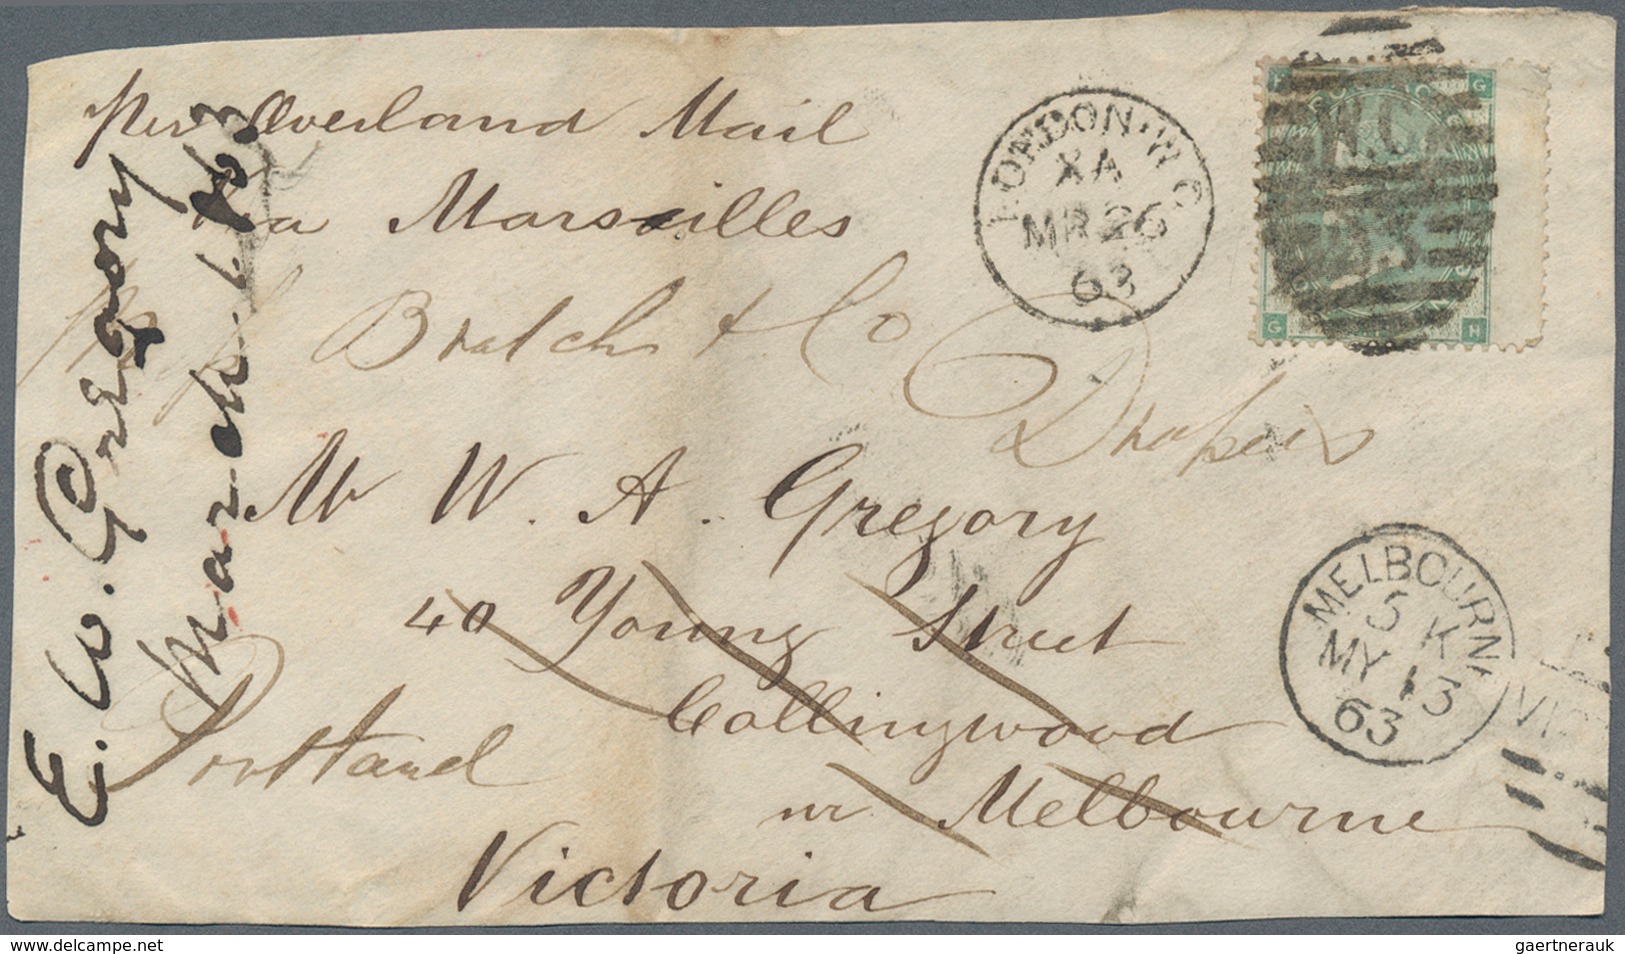 per Overland Mail
Via Marseilles
Bratch & Co
Drapers
Mr W. A. Gregory
40 Young Street
Collingwood
nr Melbourne
Portland
Victoria
E. W. Gregory
March
LONDON·W C
XA
MR 26
63
W.C
G
G
H
MELBOURNE
5 K
MY 13
63
VIC
delcampe.net
gaertnerauk